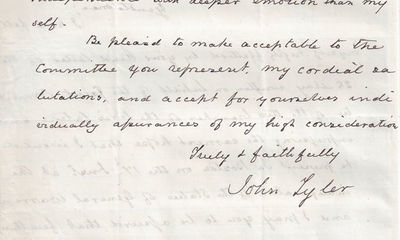 with deeper emotion than my
self.
Be pleased to make acceptable to the
Committee you represent, my cordial sa
lutations, and accept for yourselves indi
vidually assurances of my high consideration
Truly & faithfully
John Tyler